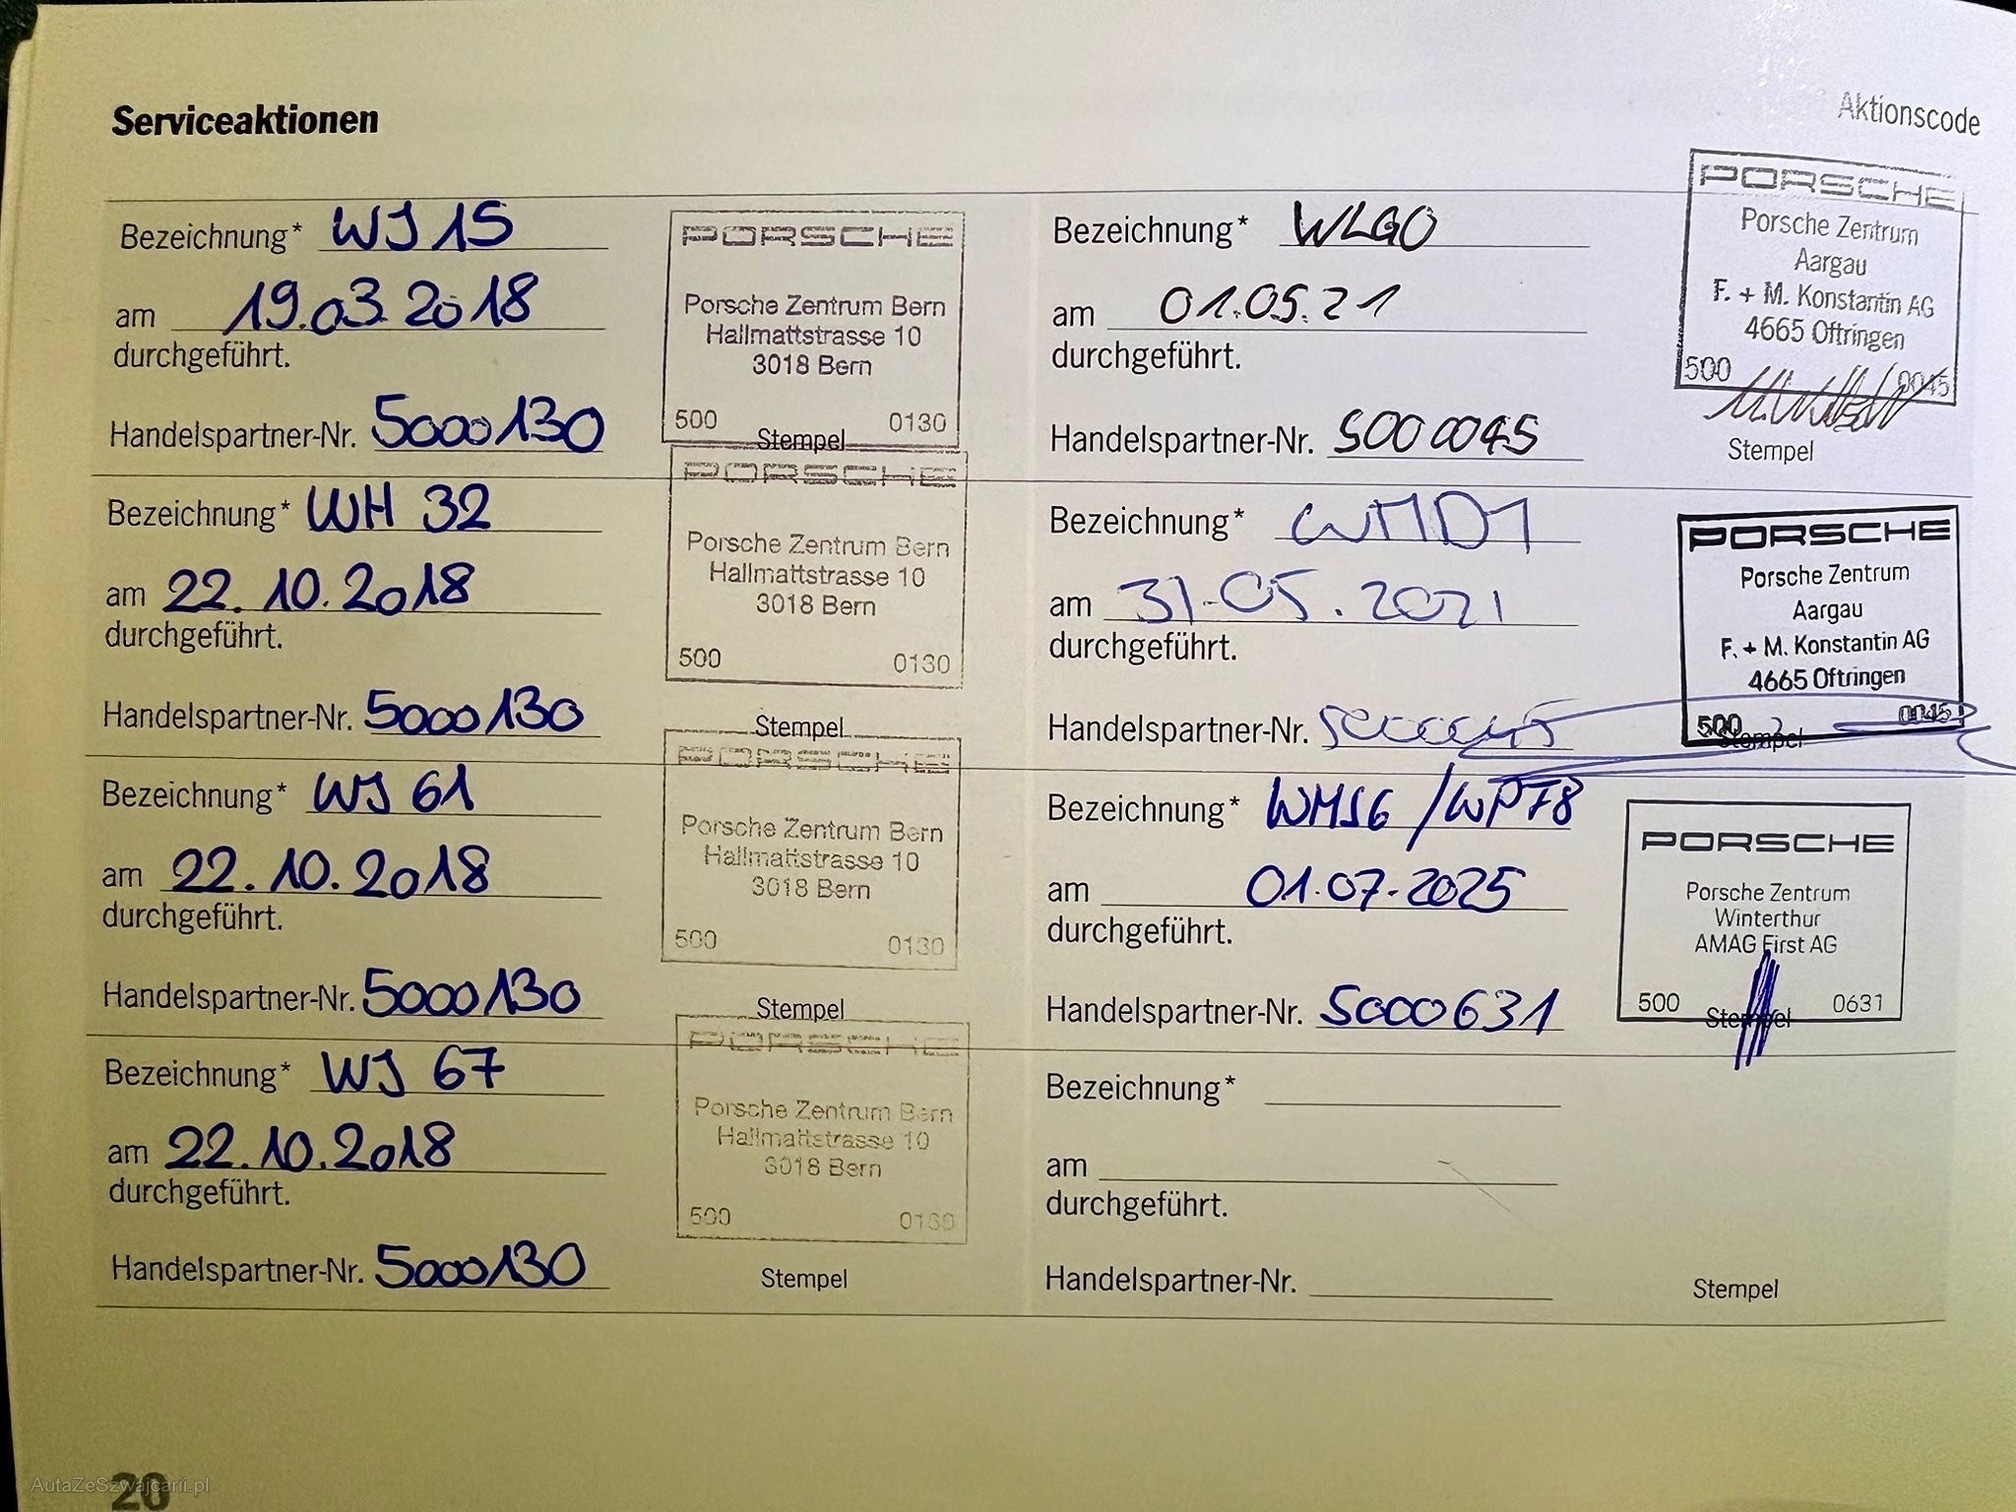 Serviceaktionen
Aktionscode
Bezeichnung* WJ 15
am 19.03.2018
durchgeführt.
Handelspartner-Nr. 5000130
PORSCHE
Porsche Zentrum Bern
Hallmattstrasse 10
3018 Bern
500 0130
Stempel
Bezeichnung* WH 32
am 22.10.2018
durchgeführt.
Handelspartner-Nr. 5000130
PORSCHE
Porsche Zentrum Bern
Hallmattstrasse 10
3018 Bern
500 0130
Stempel
Bezeichnung* WJ 61
am 22.10.2018
durchgeführt.
Handelspartner-Nr. 5000130
PORSCHE
Porsche Zentrum Bern
Hallmattstrasse 10
3018 Bern
500 0130
Stempel
Bezeichnung* WJ 67
am 22.10.2018
durchgeführt.
Handelspartner-Nr. 5000130
PORSCHE
Porsche Zentrum Bern
Hallmattstrasse 10
3018 Bern
500 0130
Stempel
Bezeichnung* WLG0
am 01.05.21
durchgeführt.
Handelspartner-Nr. 5000045
PORSCHE
Porsche Zentrum
Aargau
F. + M. Konstantin AG
4665 Oftringen
500 0045
Stempel
Bezeichnung* WMD1
am 31.05.2021
durchgeführt.
Handelspartner-Nr.
PORSCHE
Porsche Zentrum
Aargau
F. + M. Konstantin AG
4665 Oftringen
500 0045
Stempel
Bezeichnung* /
am 01.07.2025
durchgeführt.
Handelspartner-Nr. 5000631
PORSCHE
Porsche Zentrum
Winterthur
AMAG First AG
500 0631
Stempel
Bezeichnung*
am
durchgeführt.
Handelspartner-Nr.
Stempel
20
AutaZeSzwajcarii.pl